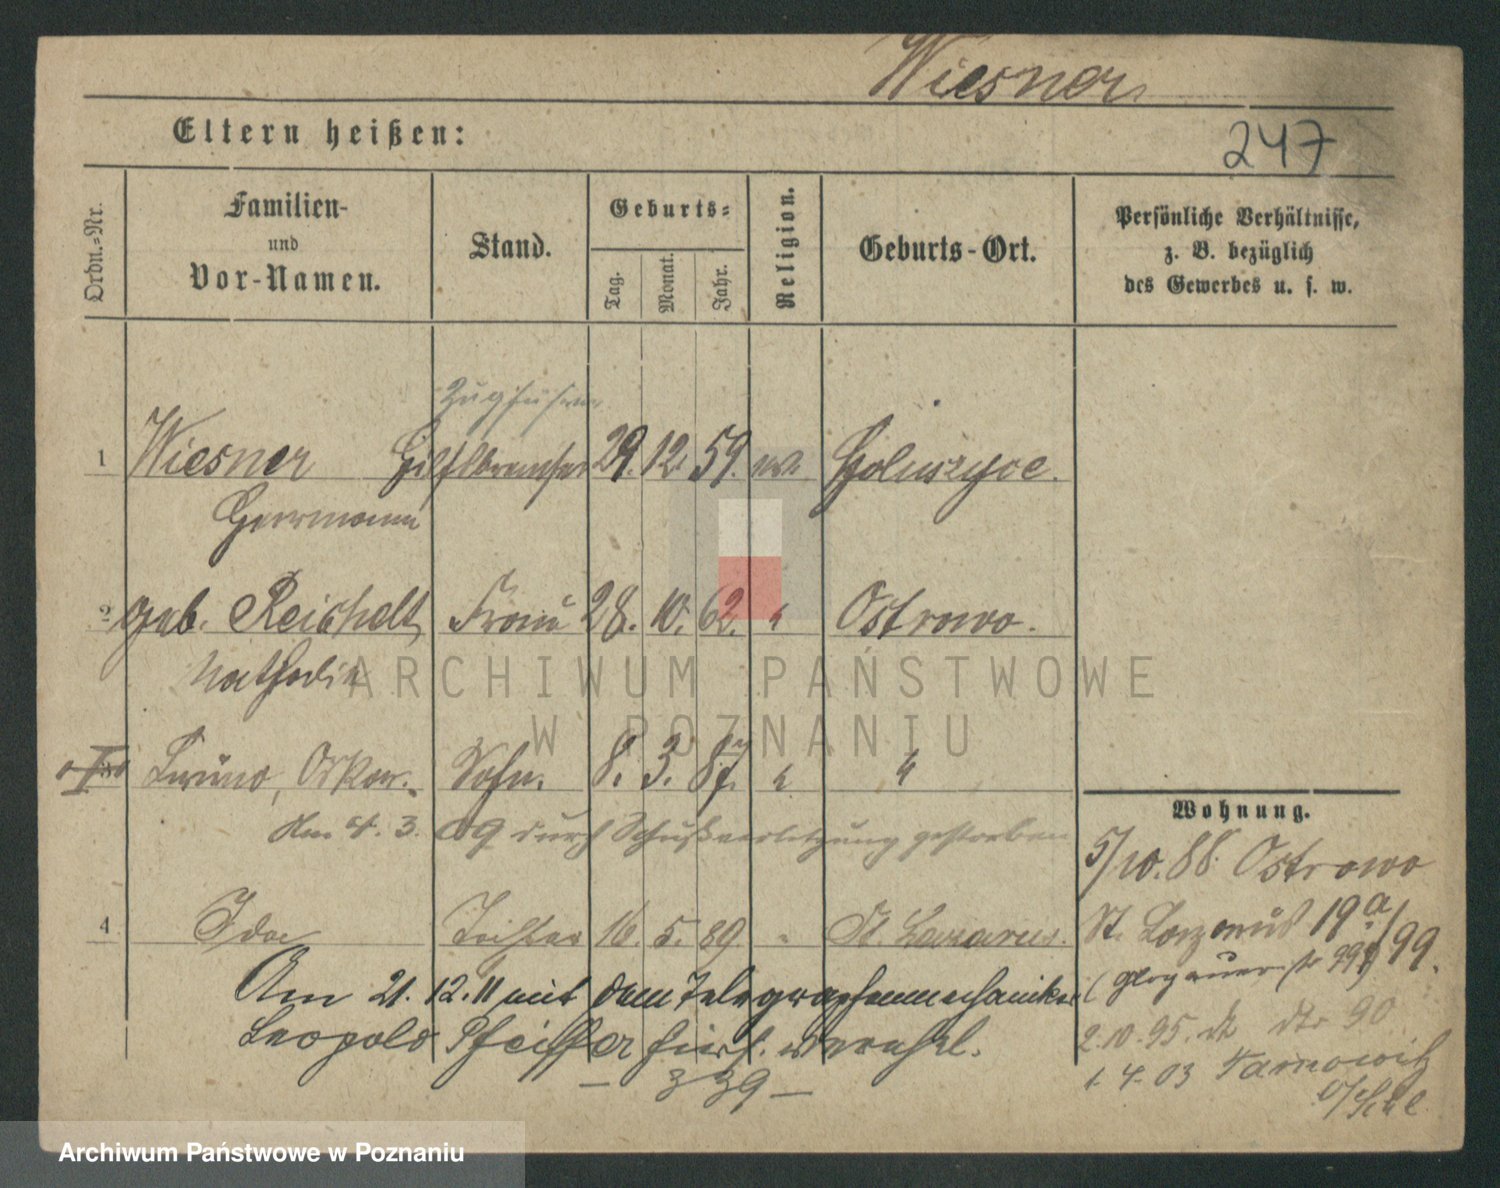 Wiesner
Eltern heißen:
247
Ordn.-Nr.
Familien-
und
Vor-Namen.
Stand.
Geburts-
Tag.
Monat.
Jahr.
Religion.
Geburts-Ort.
Persönliche Verhältnisse,
z. B. bezüglich
des Gewerbes u. s. w.
Zugführer
1 Wiesner Hilfsbremser 29. 12. 59. ev.
Herrmann
2 geb. Reichelt Frau 28. 10. 62. " Ostrowo.
Bruno, Oskar. Sohn. 8. 3. 87. " "
Am 4. 3. 09 durch Schußverletzung gestorben
4 Ida Tochter 16. 5. 89. " St. Lazarus.
Am 21. 12. 11 mit dem Telegraphenmechaniker
Leopold Pfeiffer hiers. verehel.
— 339 —
Wohnung.
5/10. 88. Ostrowo
St. Lazarus 19a/99.
(Glogauer str 99)
2. 10. 95. dto 90
1. 4. 03 Tarnowitz
O/Schl.
ARCHIWUM PAŃSTWOWE
W POZNANIU
Archiwum Państwowe w Poznaniu